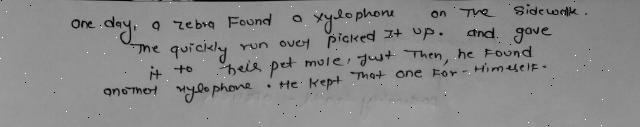 one day, a zebra Found a xylophone on The Sidewalk.
The quickly run over picked It up. and gave
it to heir pet mule, just Then, he Found
another xylophone. He kept That one For-Himself.